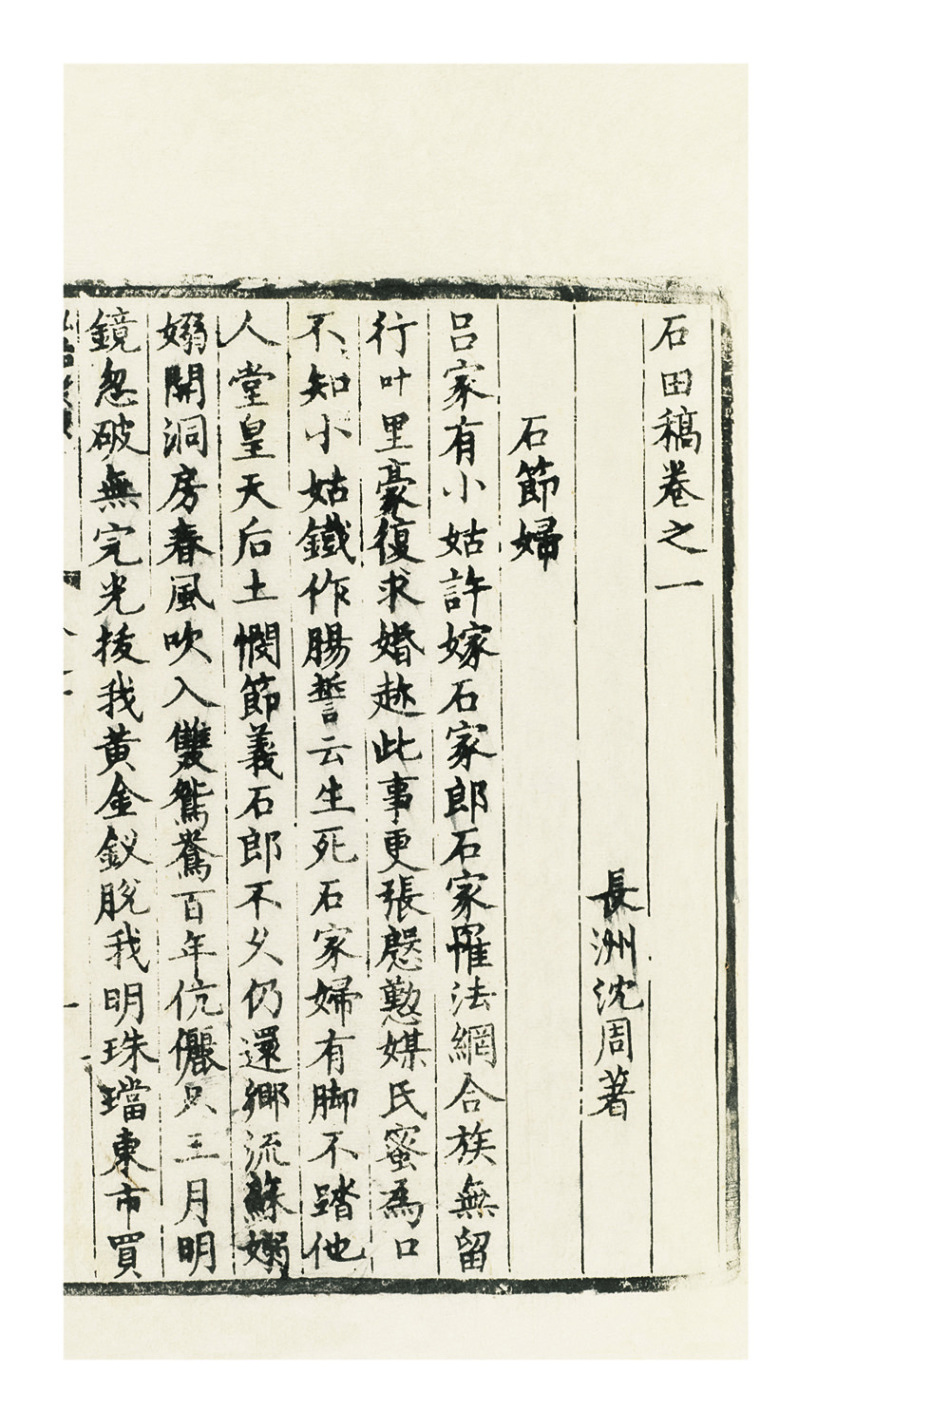 石田稿卷之一
長洲沈周著
石節婦
吕家有小姑許嫁石家郎石家罹法網合族無留
行叶里豪復求婚趂此事更張慇懃媒氏蜜為口
不知小姑鐵作腸誓云生死石家婦有脚不踏他
人堂皇天后土憫節義石郎不久仍還鄉流蘇嫋
嫋開洞房春風吹入雙鴛鴦百年伉儷只三月明
鏡忽破無完光拔我黃金釵脫我明珠璫東市買